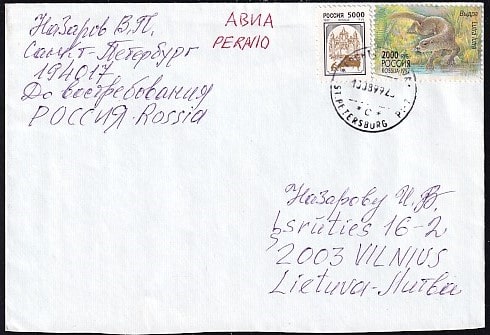 Назаров В.П.
Санкт-Петербург
194017
До востребования
РОССИЯ-Rossia
АВИА
PERNIO
РОССИЯ 5000
Выдра
Lutra lutra
2000
РОССИЯ
ROSSIJA 1997
ST. PETERSBURG
* C *
Назарову И.В.
Īsrūties 16-2
2003 VILNIUS
Lietuva-Литва